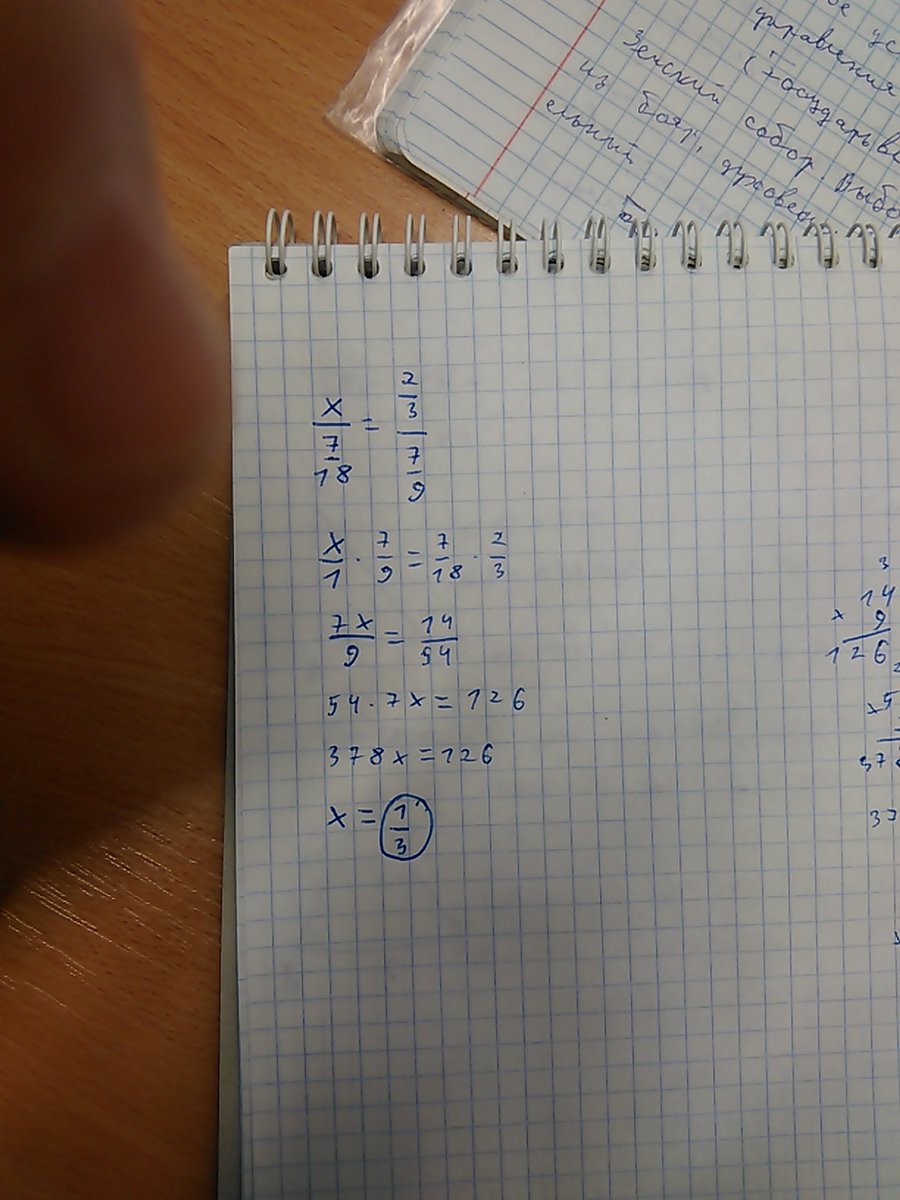 ное ус
управления
(Государыве
Земский собор. Выбо
из бояр, духовен.
ельный.
x/(7/18) = (2/3)/(7/9)
x/1 · 7/9 = 7/18 · 2/3
7x/9 = 14/54
54 · 7x = 126
378x = 126
x = 1/3
3
14
x 9
126
2
x5
378
37